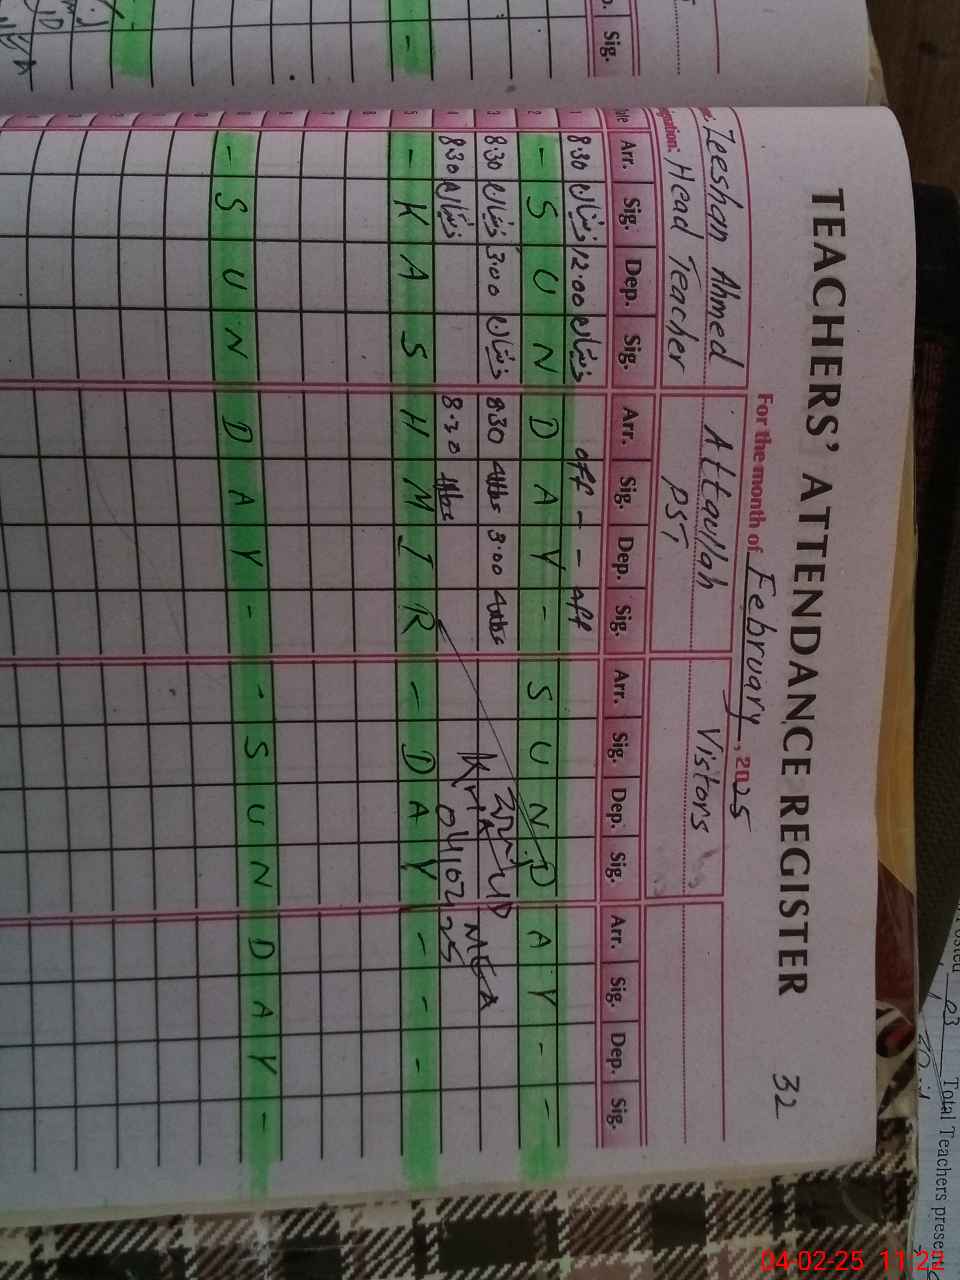 TEACHERS' ATTENDANCE REGISTER 32
For the month of February, 2025
Zeeshan Ahmed Attaullah Visitors
Head Teacher PST
Arr. Sig. Dep. Sig. Arr. Sig. Dep. Sig. Arr. Sig. Dep. Sig. Arr. Sig. Dep. Sig.
1 8:30 ذیشان 12:00 ذیشان off - - off
2 - S U N D A Y - S U N D A Y - -
3 8:30 ذیشان 3:00 ذیشان 8:30 3:00
4 8:30 ذیشان 8:30 MEA
04/02/25
5 - K A S H M I R - D A Y - - -
- S U N D A Y - - S U N D A Y -
Sig.
03 Total Teachers present
04-02-25 11:22